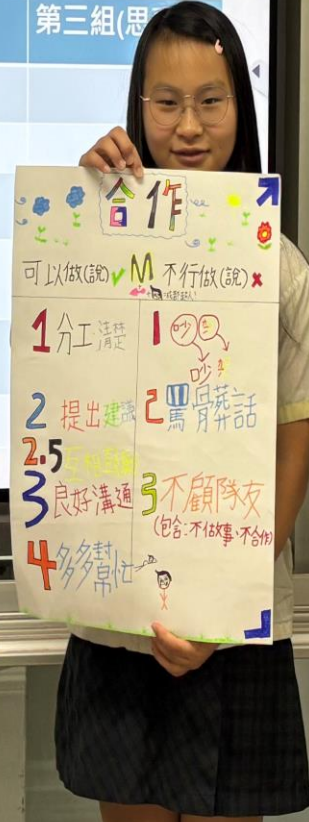 第三組(思
合作
可以做(說)✓ M 不行做(說)✗
1 分工清楚
2 提出建議
2.5 互相鼓勵
3 良好溝通
4 多多幫忙
1 吵
吵
2 罵骨葬話
3 不顧隊友
(包含:不做事、不合作)